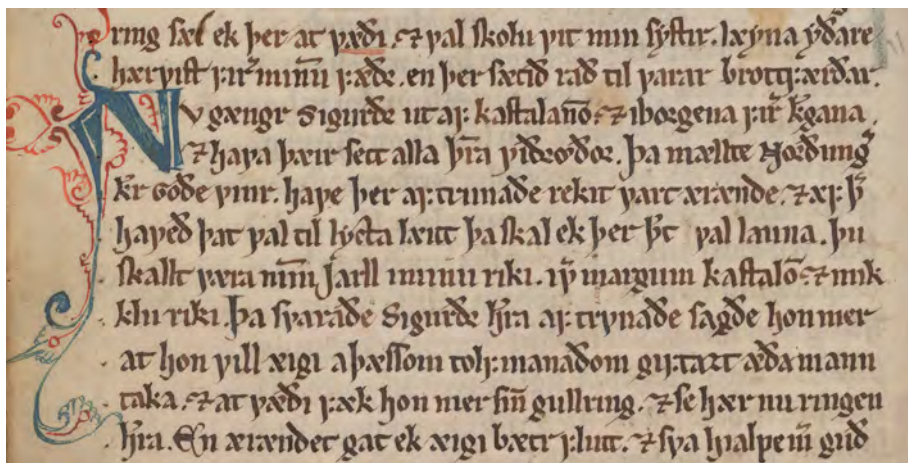 ring sæl ek þer at væði. ⁊ val skolu vit min systir. læyna yðare
hærvist firir minnu fæðr. en þer sætið rað til varar brottfærðar.
NV gængr Sigurðr ut af kastalanō. ⁊ i borgena firir k̄gana
⁊ hafa þæir sett alla þr̄a viðrœðor. þa mællte Norðungr̄
k̄r goðe vinr. have þer af trunaðe rekit vart ærænde. ⁊ æf þr̄
haveð þat val til lycta læitt þa skal ek þer þt̄ val launa. þu
skallt væra minn Jarll i minu riki. ifir margum kastalō. ⁊ mik
klu riki. Þa svaraðe Sigurðr h̄ra af trynaðe sagðe hon mer
at hon vill æigi a þæssom tolf manaðom giftazt æða mann
taka. ⁊ at væði fæk hon mer sin̄ gullring. ⁊ se hær nu ringen
h̄ra. En ærændet gat ek æigi bætr flutt. ⁊ sva hialpe m̄ guð